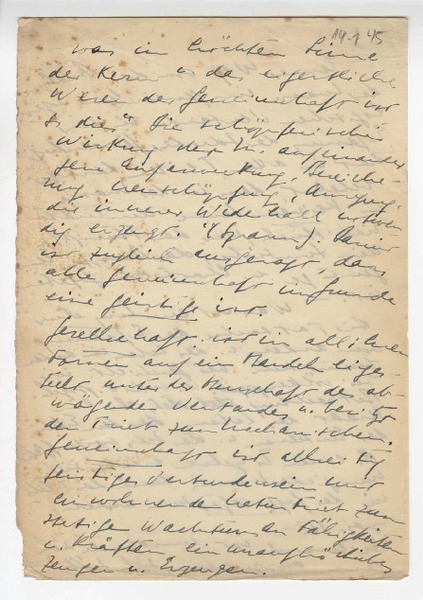 14-1 45
was im höchsten Sinne
der Kern u. das eigentliche
Wesen der Gemeinschaft ist
ist dies: Die schöpferische
Wirkung der M. aufeinander
die innerer Widerhall notwen
dig erzeugt. (Spann). Damit
ist zugleich ausgesagt, dass
alle Gemeinschaft im Grunde
eine geistige ist.
Gesellschaft ist in all ihren
Formen auf ein Handeln einges-
tellt unter der Herrschaft des ab-
wägenden Verstandes u. besitzt
den Trieb zur Mechanischen.
Gemeinschaft ist allseitig
geistiges Verbundensein mit
einwohnender Natur Trieb zum
stetigen Wachstum an Fähigkeiten
u. Kräften ein unaufhörliches
Zeugen u. Erzeugen.